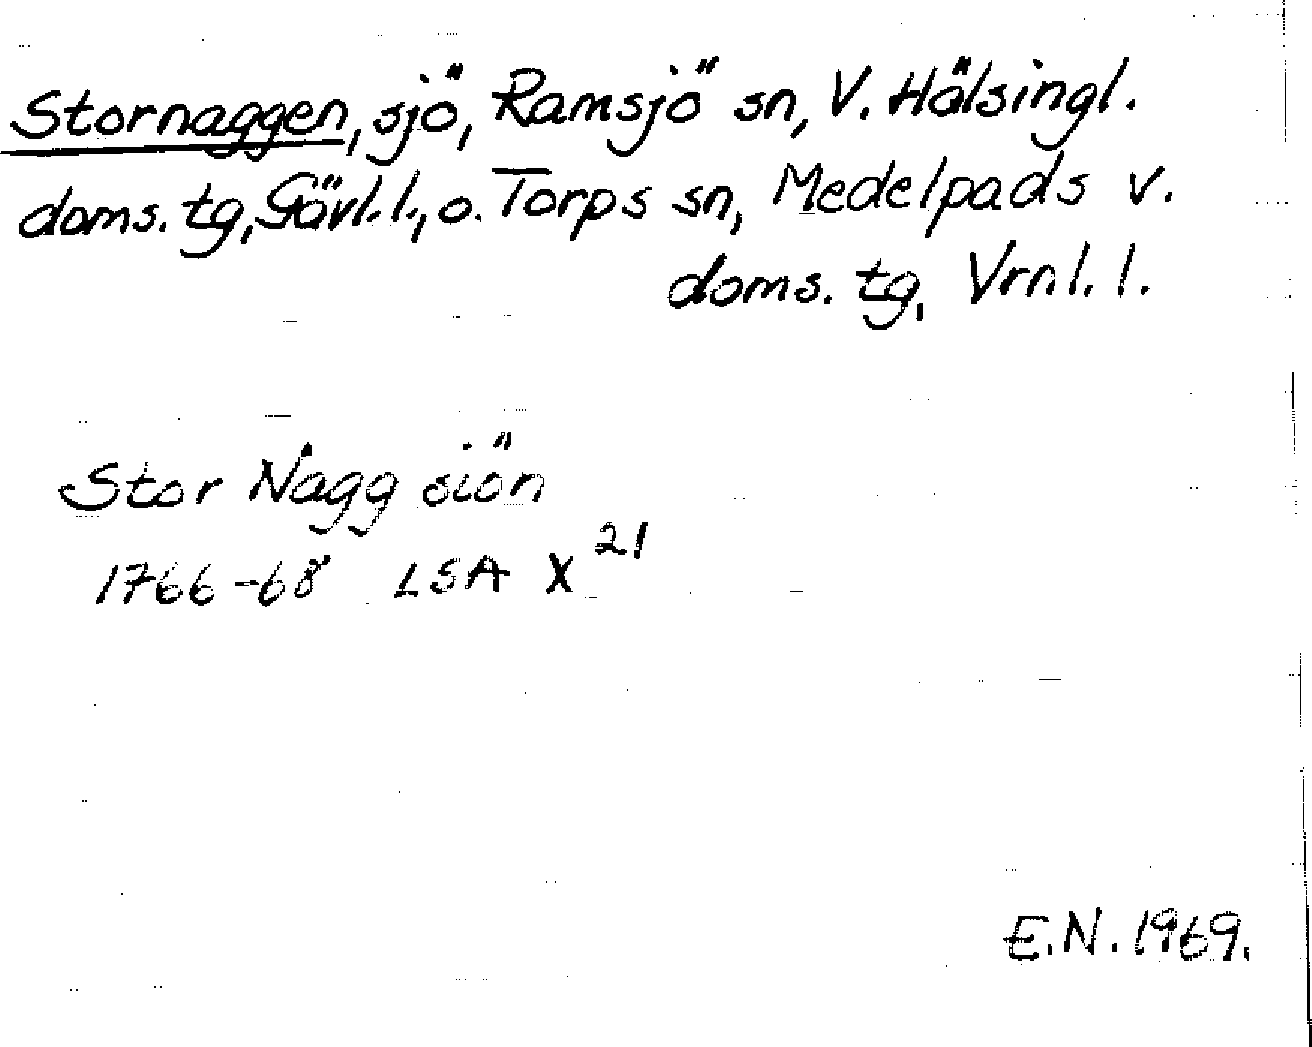 Stornaggen, sjö, Ramsjö sn, V. Hälsingl.
doms. tg, Gävl. l., o. Torps sn, Medelpads v.
doms. tg, Vrnl. l.
Stor Nagg siön
1766-68 LSA X 21
E.N. 1969.